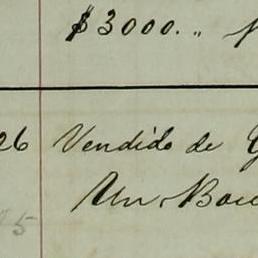 $3000.„
26 Vendido de
Un
25